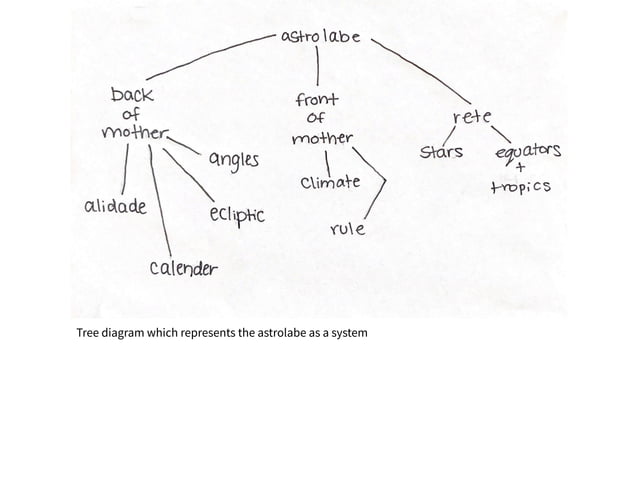 astrolabe
back
of
mother
front
of
mother
rete
angles
climate
stars
equators
+
tropics
alidade
ecliptic
rule
calender
Tree diagram which represents the astrolabe as a system